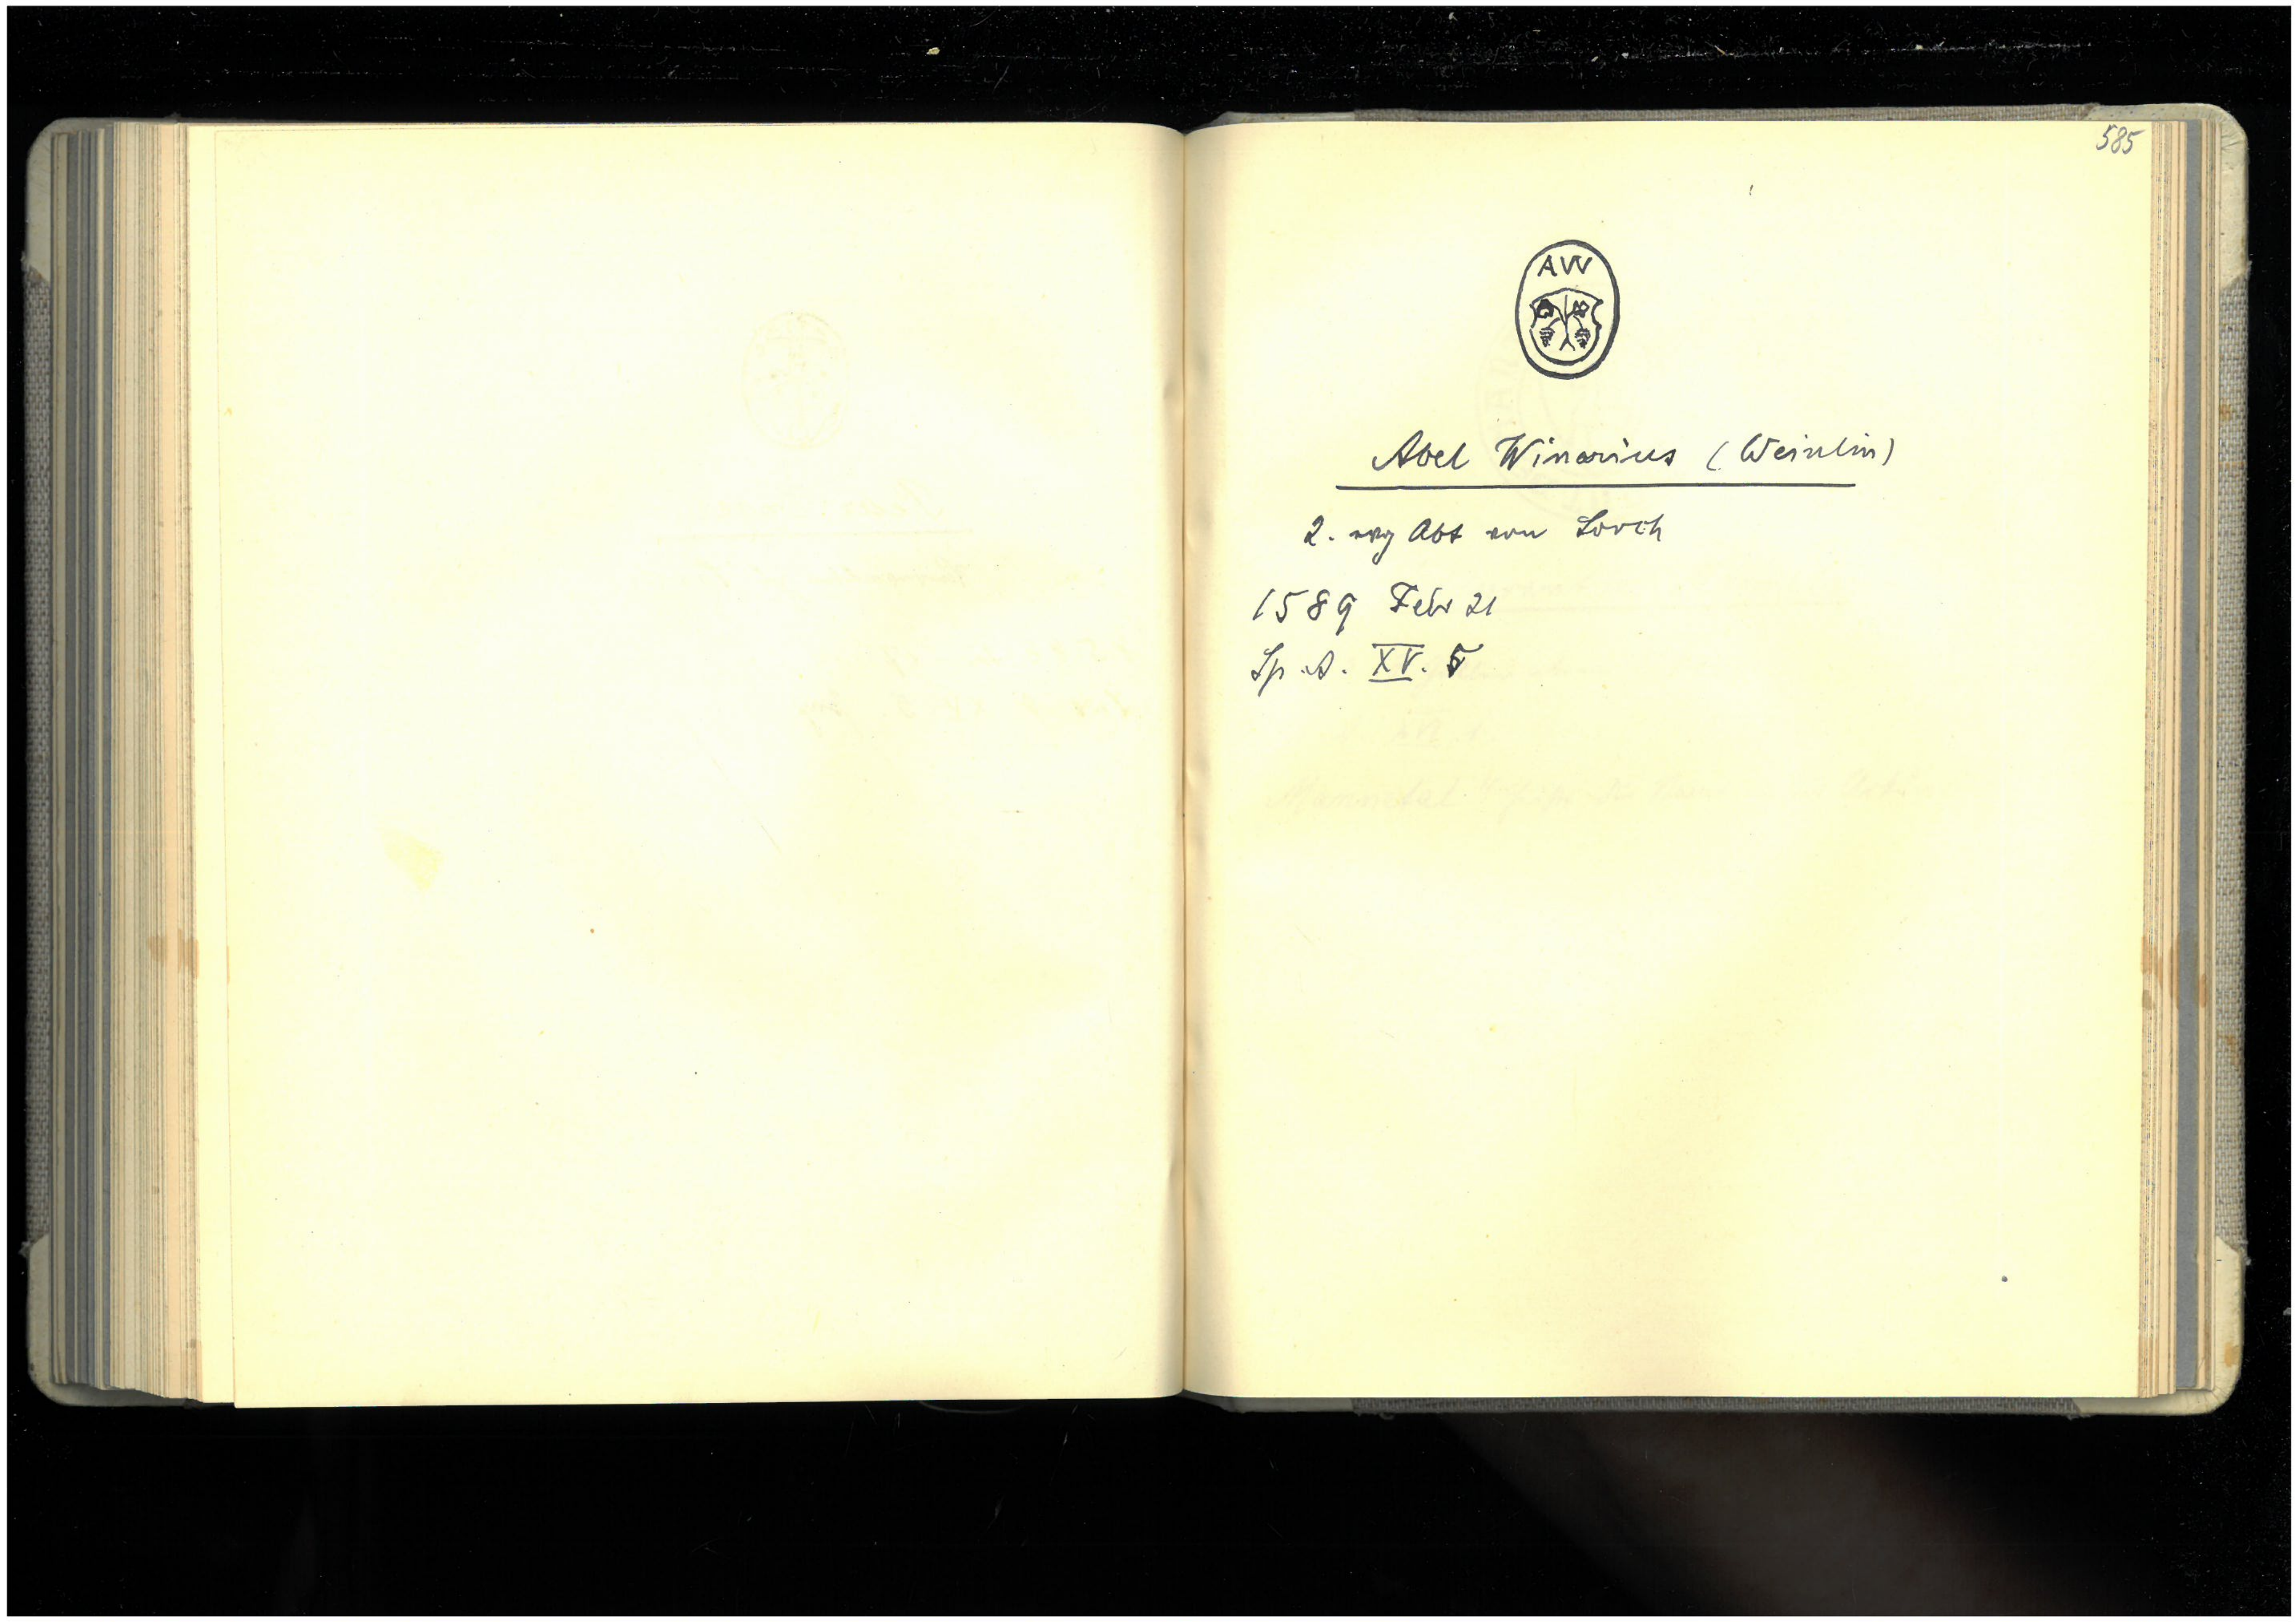 585
AW
Abel Winarius (Weinlin)
2. evg Abt von Lorch
1589 Febr 21
Sp. A. XV. 5